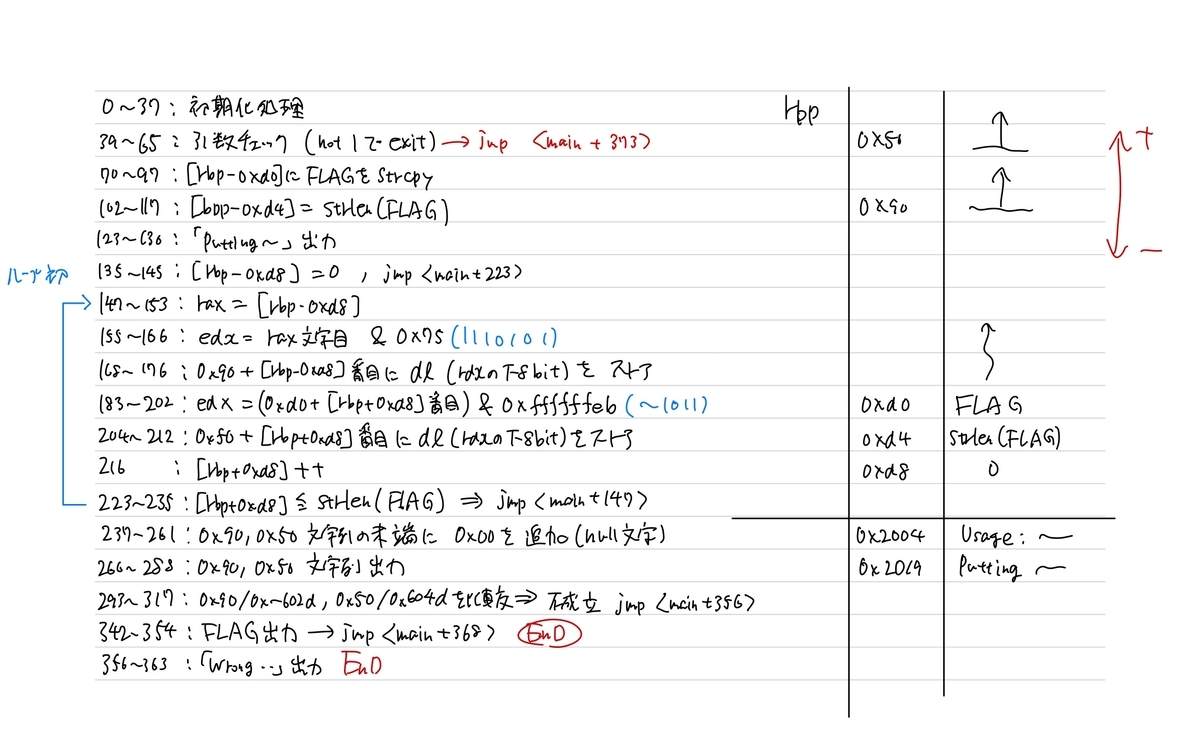 0~37 : 初期化処理
39~65 : 引数チェック (not 1で exit) → jmp <main + 373>
70~97 : [rbp-0xd0]に FLAGを strcpy
102~117 : [bpp-0xd4] = strlen(FLAG)
123~130 : 「Putting~」出力
135~145 : [rbp-0xd8] = 0 , jmp <main+223>
ループ初
147~153 : rax = [rbp-0xd8]
155~166 : edx = rax文字目 & 0x75 (1110101)
168~176 : 0x90 + [rbp-0xd8]番目に dl (rdxの下8bit)を ストア
183~202 : edx = (0xd0+[rbp+0xd8]番目) & 0xffffffeb (~1011)
204~212 : 0x50 + [rbp+0xd8]番目に dl (rdxの下8bit)をストア
216 : [rbp+0xd8]++
223~235 : [rbp+0xd8] ≦ strlen(FLAG) ⇒ jmp <main+147>
237~261 : 0x90, 0x50 文字列の末端に 0x00を 追加 (null文字)
266~288 : 0x90, 0x50 文字列出力
293~317 : 0x90/0x~602d, 0x50/0x604d を比較 ⇒ 不成立 jmp <main+356>
342~354 : FLAG出力 → jmp <main+368> End
356~363 : 「Wrong‥」出力 End
rbp
0x50
0x90
0xd0 FLAG
0xd4 strlen(FLAG)
0xd8 0
0x2004 Usage: ~
0x2019 Putting ~
+
-